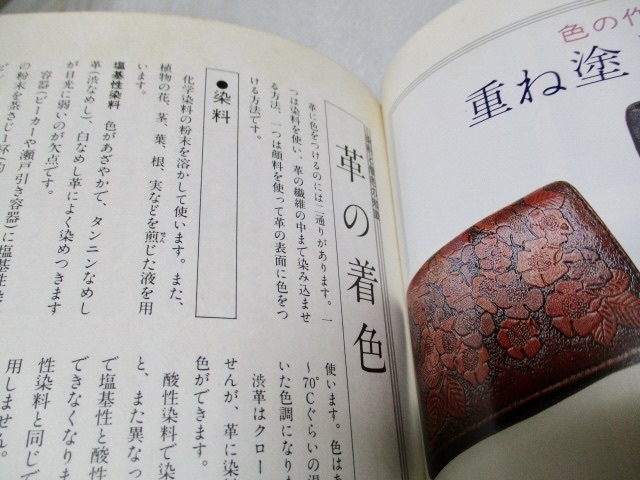 色の作
重ね塗
革の着色
革に色をつけるのには二通りがあります。一
つは染料を使い、革の繊維の中まで染み込ませ
る方法、一つは顔料を使って革の表面に色をつ
ける方法です。
●染料
化学染料の粉末を溶かして使います。また、
植物の花、茎、葉、根、実などを煎じた液を用
せん
います。
塩基性染料 色があざやかで、タンニンなめし
革(渋なめし)、白なめし革によく染めつきます
が日光に弱いのが欠点です。
容器(ビーカーや瀬戸引き容器)に塩基性
の粉末を茶さじ1杯
使います。色は
〜70℃ぐらいの
いた色調になりま
渋革はクロー
せんが、革に染
色ができます。
酸性染料で染
と、また異なっ
で塩基性と酸性
できなくなりま
性染料と同じで
用しません。